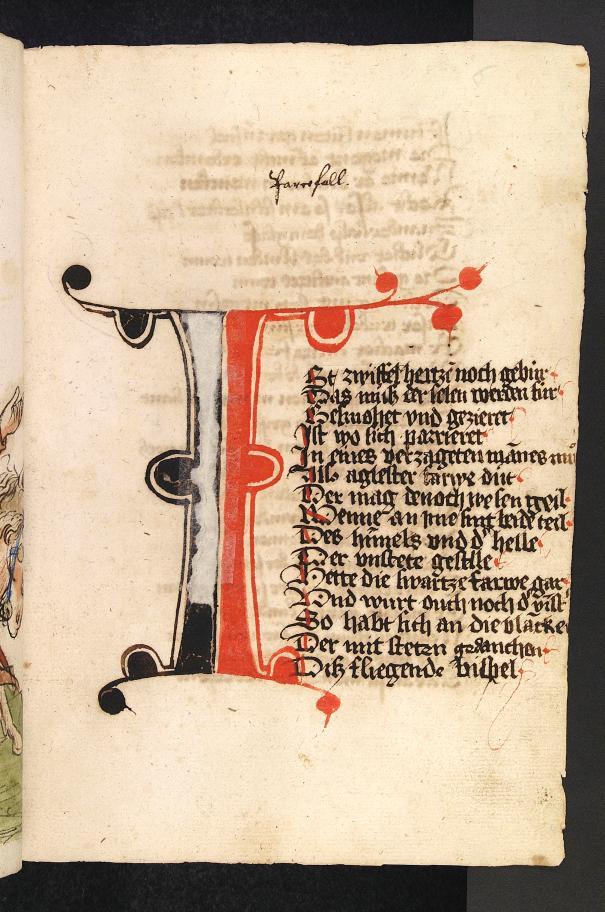 Parcefall.
I
St zwiffel hertze noch gebur
Das muß der selen werden sur
Gesmohet vnd gezieret
Ist wo sich parrieret
In eines verzageten mānes
Alß aglester farwe dut
Der mag denoch wesen geil
Wenne an ime sint beide teil
Des hūmels vnd d' helle
Der vnstete geselle
Hette die swartze farwe gar
Vnd wurt ouch noch d'
So habt sich an die blancke
Der mit steten gedancken
Diß fliegende bispel